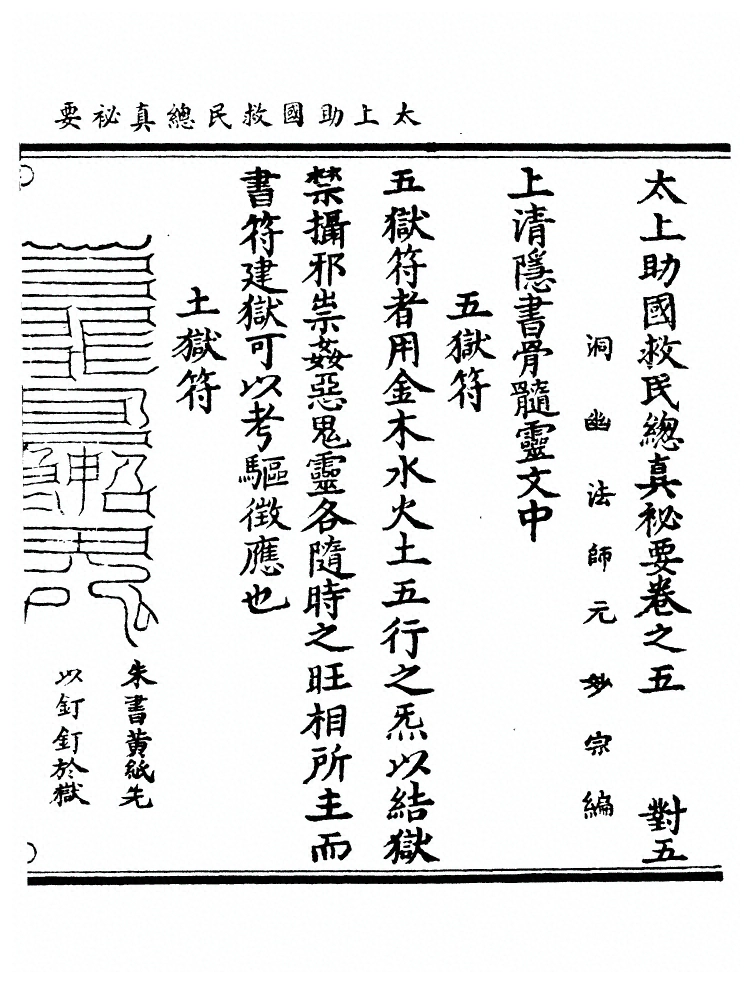 太上助國救民總真祕要
太上助國救民總真祕要卷之五 對五
洞幽法師元妙宗編
上清隱書骨髓靈文中
五獄符
五獄符者用金木水火土五行之炁以結獄
禁攝邪祟姦惡鬼靈各隨時之旺相所主而
書符建獄可以考驅徵應也
土獄符
朱書黃紙先
以釘釘於獄